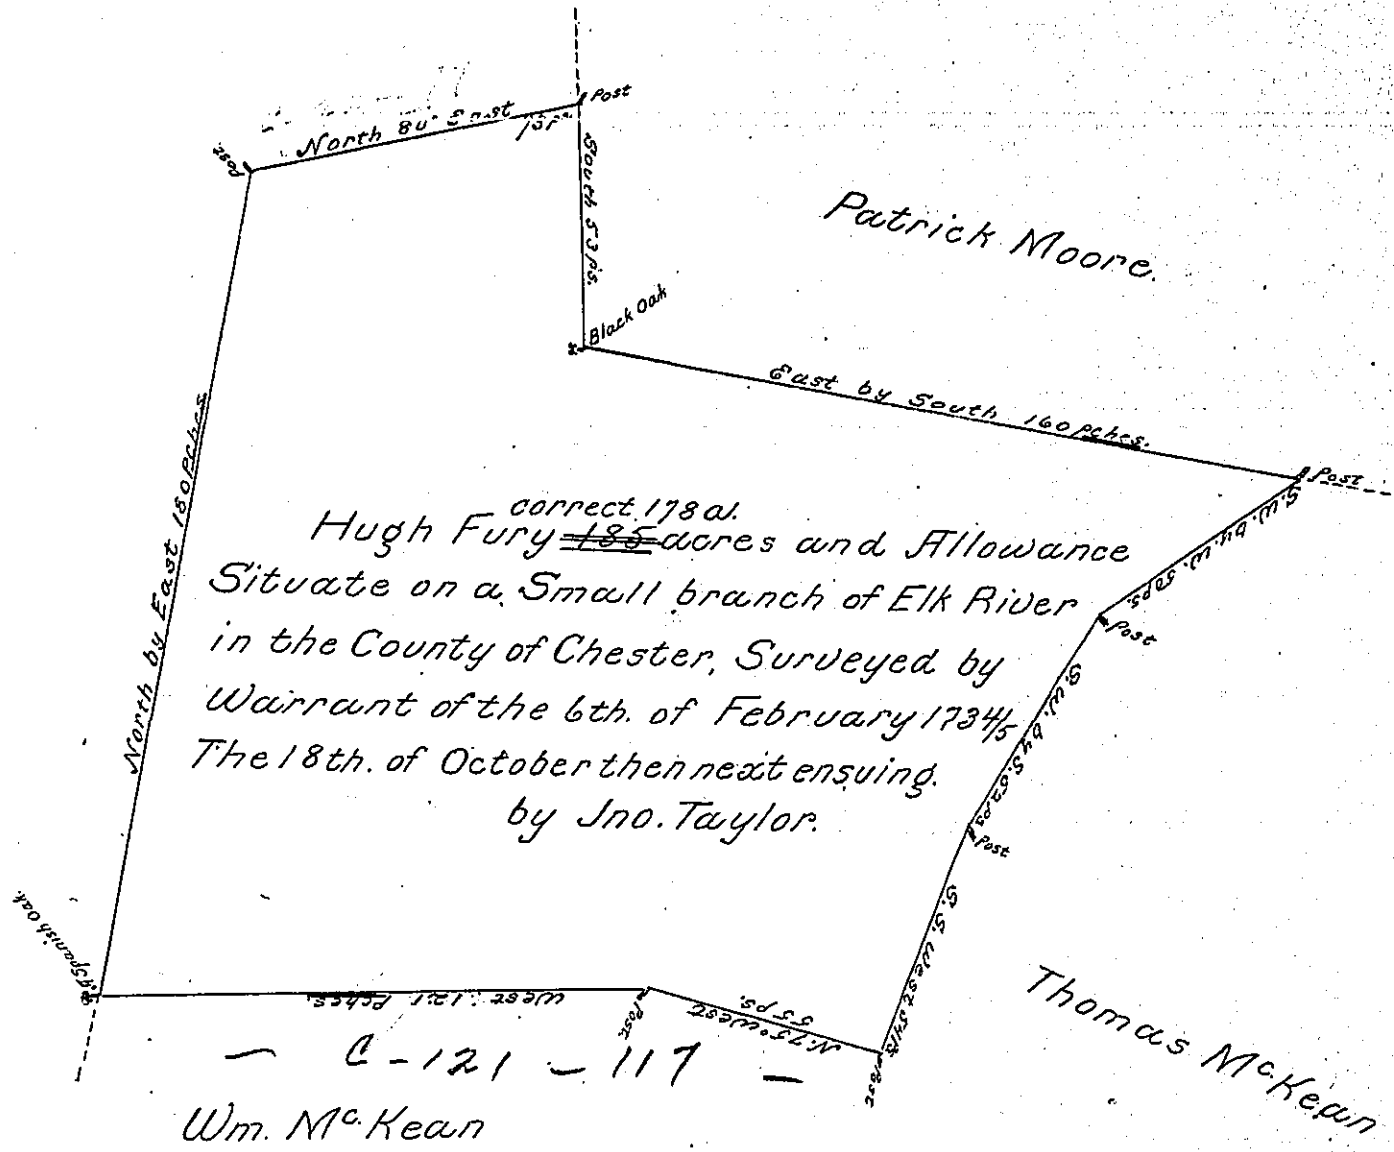 Post
North 80° East
Post
South 53 ps.
Patrick Moore.
Black Oak
East by South 160 pches.
Post
S.W. by W. 50 ps.
Post
North by East 180 Pches.
correct 178 a.
Hugh Fury 185 acres and Allowance
Situate on a Small branch of Elk River
in the County of Chester, Surveyed by
Warrant of the 6th. of February 1734/5
The 18th. of October then next ensuing.
by Jno. Taylor.
S.W. by S. 52 ps
Post
S. S. West 54 Ps
A Spanish Oak.
West 121 Pches.
Post
N. 75° West
55 ps.
Post
C - 121 - 117 -
Wm. McKean
Thomas McKean